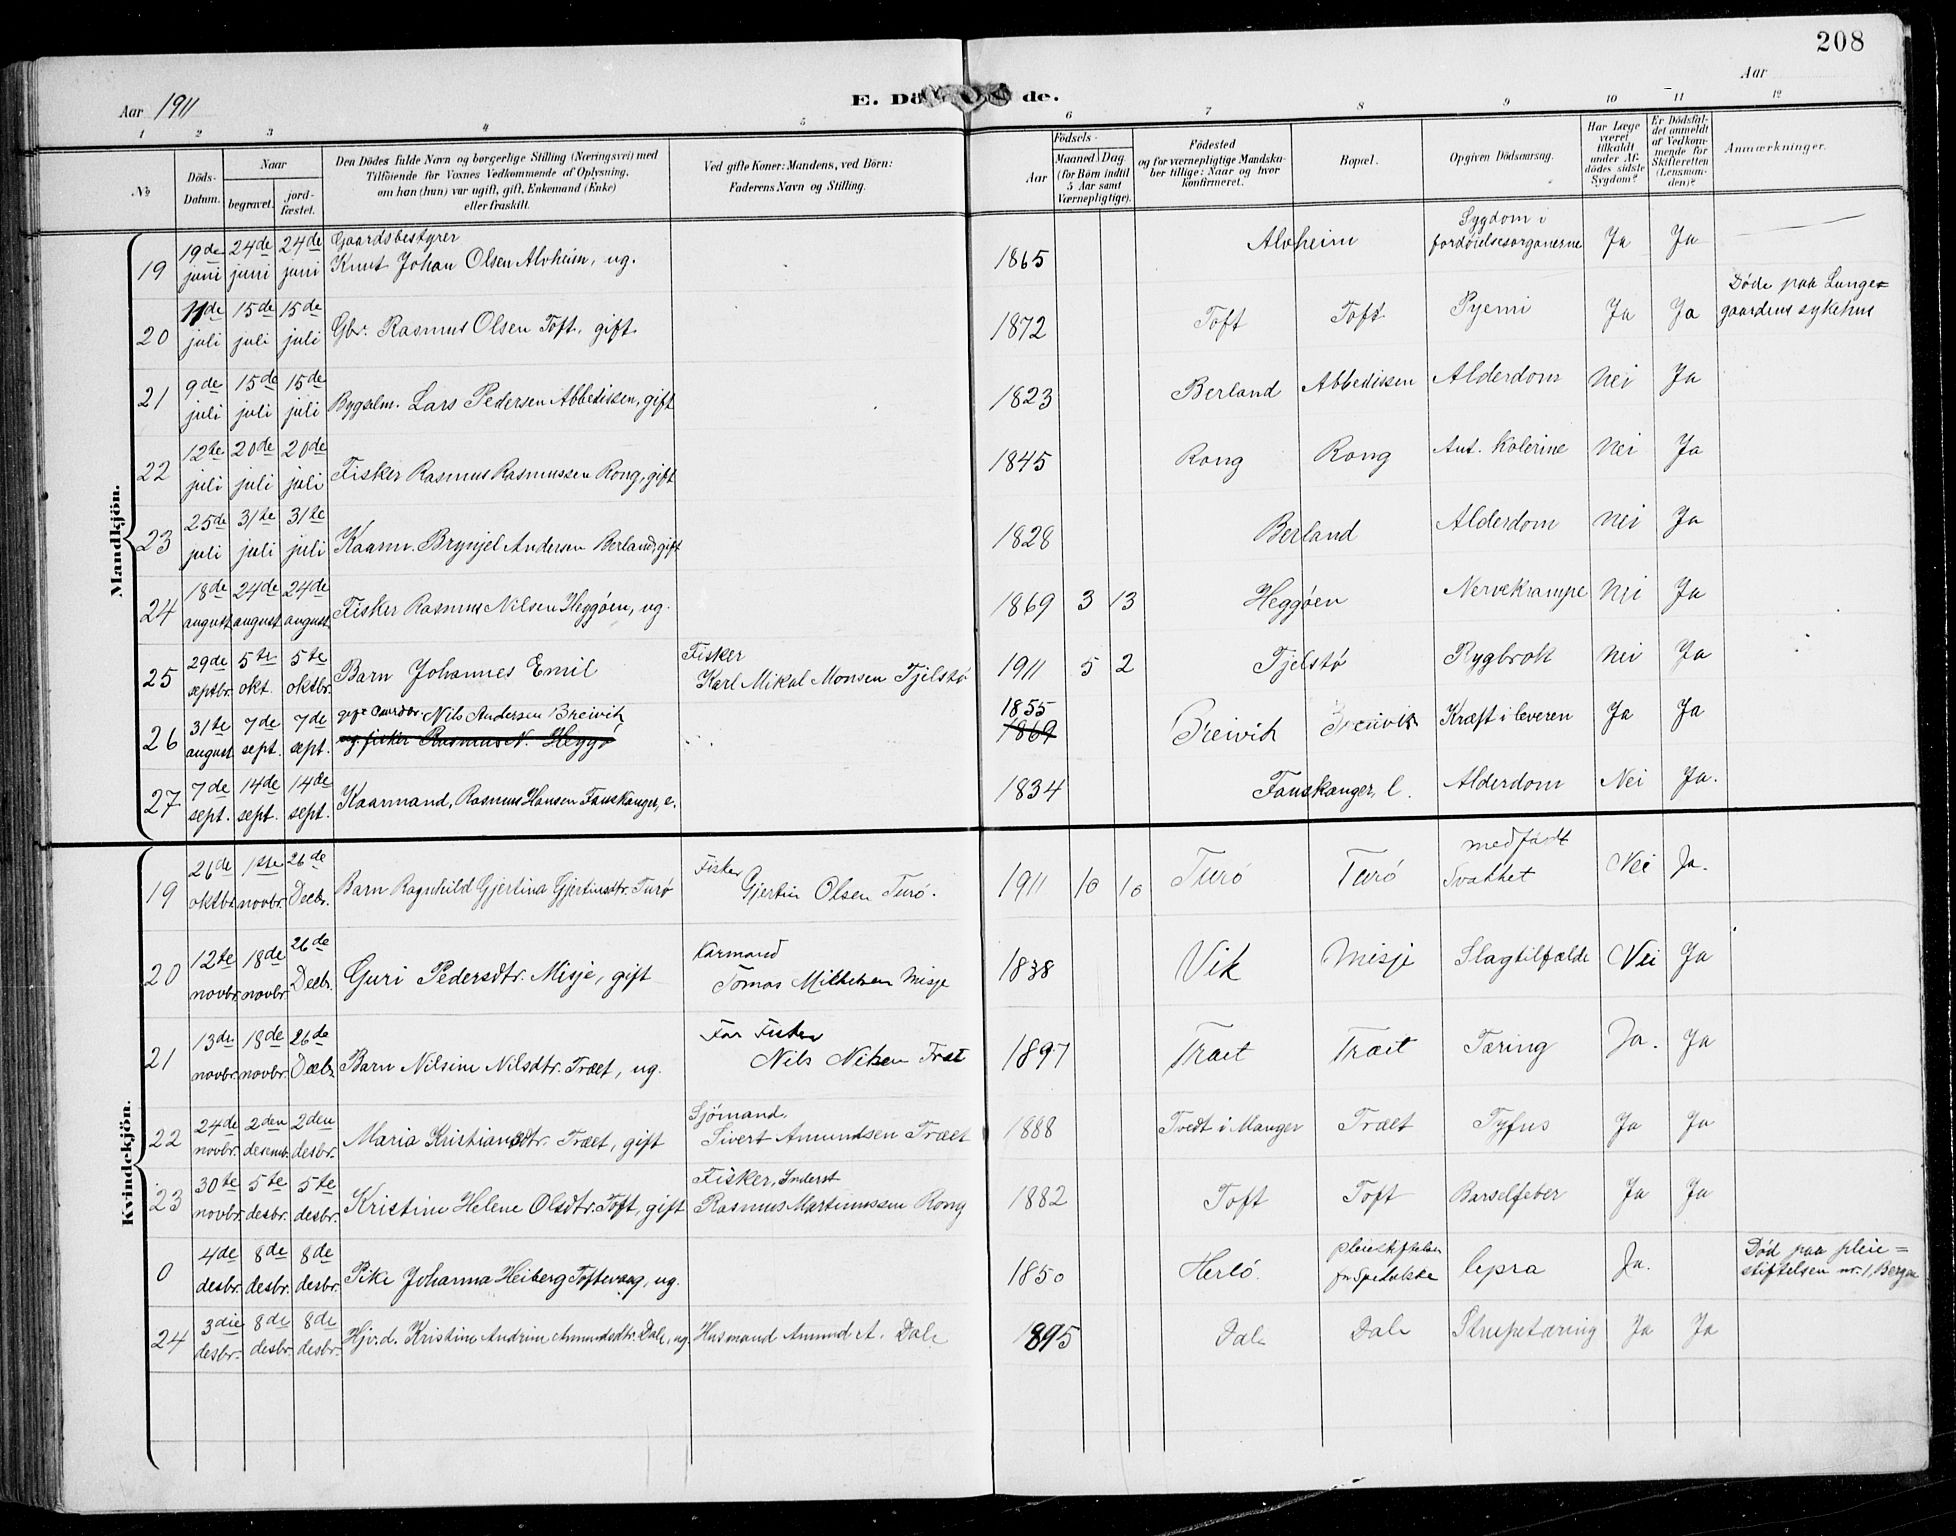 208
Aar 1911
E. Dö de.
Aar
1 2 3 4 5 6 7 8 9 10 11 12
No
Döds-Datum.
Naar
begravet. jordfæstet.
Den Dödes fulde Navn og borgerlige Stilling (Næringsvei) med Tilföiende for Voxnes Vedkommende af Oplysning, om han (hun) var ugift, gift, Enkemand (Enke) eller fraskilt.
Ved gifte Koner: Mandens, ved Börn: Faderens Navn og Stilling.
Födsels-
Aar Maaned Dag (for Börn indtil 5 Aar samt Værnepligtige).
Födested og for værnepligtige Mandskaber tillige: Naar og hvor konfirmeret.
Bopæl.
Opgiven Dödsaarsag.
Har Læge været tilkaldt under Afdödes sidste Sygdom?
Er Dödsfaldet anmeldt af Vedkommende for Skifteretten (Lensmanden)?
Anmærkninger.
Mandkjön.
19 19de juni 24de juni 24de juni Gaardsbestyrer Knut Johan Olsen Alvheim, ug. 1865 Alvheim Sygdom i fordöielsesorganerne Ja Ja
20 11de juli 15de juli 15de juli Gbr. Rasmus Olsen Toft, gift 1872 Toft Toft Pyemi Ja Ja Döde paa Lungegaardens sykehus
21 9de juli 15de juli 15de juli Bygselm. Lars Pedersen Abbedissen, gift 1823 Berland Abbedissen Alderdom Nei Ja
22 12te juli 20de juli 20de juli Fisker Rasmus Rasmussen Rong, gift 1845 Rong Rong Ant. Kolerine Nei Ja
23 25de juli 31te juli 31te juli Kaarm. Brynjel Andersen Berland, gift 1828 Berland Alderdom Nei Ja
24 18de august 24de august 24de august Fisker Rasmus Nilsen Heggöen, ug. 1869 3 13 Heggöen Nervekrampe Nei Ja
25 29de septbr. 5te okt. 5te oktbr. Barn Johannes Emil Fisker Karl Mikal Monsen Tjelstö 1911 5 2 Tjelstö Rygbrok Nei Ja
26 31te august 7de sept. 7de sept. gift Gaardbr. Nils Andersen Breivik ug. fisker Rasmus N. Heggö 1855 1869 Breivik Breivik Kræft i leveren Ja Ja
27 7de sept. 14de sept. 14de sept. Kaarmand, Rasmus Hansen Fauskanger, e. 1834 Fauskanger, l. Alderdom Nei Ja.
Kvindekjön.
19 26de oktbr 1ste novbr. 26de Decbr. Barn Ragnhild Gjertina Gjertinsdtr. Turö Fisker Gjertin Olsen Turö. 1911 10 10 Turö Turö medfödt Svakhet Nei Ja.
20 12te novbr. 18de novbr. 26de Decbr. Guri Pedersdtr. Misje, gift Karmand Tomas Mikkelsen Misje 1838 Vik Misje Slagtilfælde Nei Ja
21 13de novbr. 18de novbr. 26de Decbr. Barn Nilsine Nilsdtr. Træet, ug. Far Fisker Nils Nilsen Træt 1897 Træet Træet Tæring Ja. Ja
22 24de novbr. 2den desembr. 2den desbr. Maria Kristiansdtr. Træet, gift Sjömand. Sivert Amundsen Træet 1888 Tvedt i Manger Træet Tyfus Ja Ja
23 30te novbr. 5te desbr. 5te desbr. Kristine Helene Olsdtr. Toft, gift Fisker, Inderst Rasmus Martinussen Rong 1882 Toft Toft Barselfeber Ja Ja
0 4de desbr. 8de desbr. 8de desbr. Pike Johanna Heiberg Toftevaag, ug. 1850 Herlö. pleiestiftelsen for Spedalske lepra Ja. Död paa pleiestiftelsen nr. 1, Bergen
24 3die desbr. 8de desbr. 8de desbr. Hjv.d. Kristine Andrine Amundsdtr. Dale, ug. Husmand Amund A. Dale 1895 Dale Dale Strupetæring Ja Ja